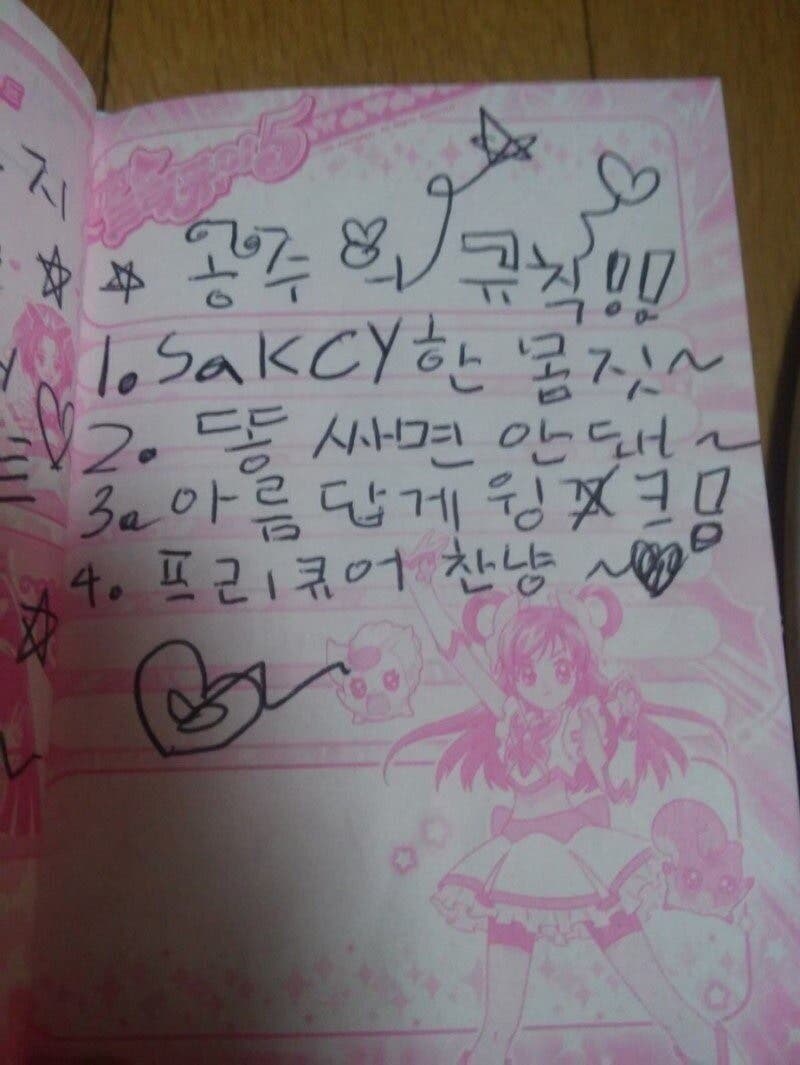 프리큐어5
지
☆ ☆ 공주의 규칙!!
1. SaKCY한 몸짓~
2. 똥 싸면 안돼~
3. 아름답게 윙크!
4. 프리큐어 찬냥~♥